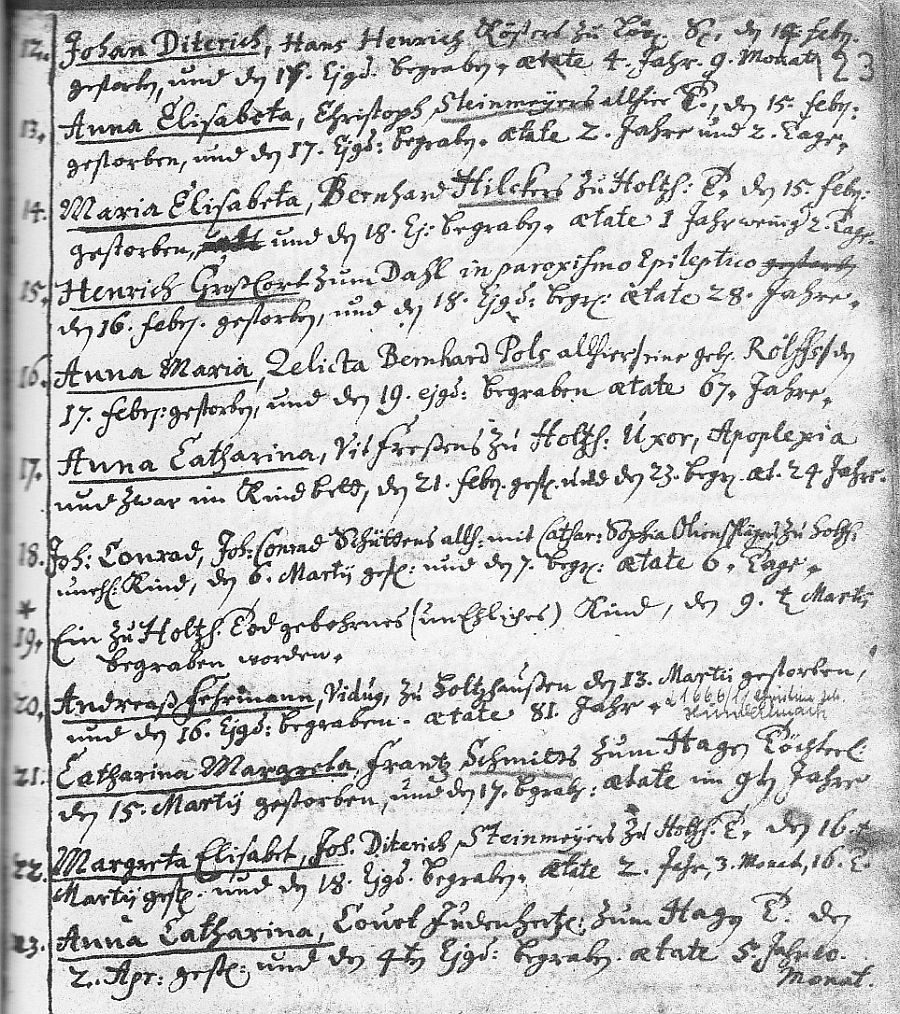 12. Johan Diterich, Hans Henrich Kösters zu S., den 14 febr.
gestorben, und den 17. Ejsd. begraben, ætate 4. Jahr. 9. Monat
123
13. Anna Elisabeta, Christoph Steinmeyers allhier T., den 15. febr:
gestorben, und den 17. Ejsd: begraben. ætate 2. Jahre und 2. Tage.
14. Maria Elisabeta, Bernhard Hilckers zu Holtzh: T. den 15. febr:
gestorben, und den 18. Ej: begraben. ætate 1 Jahr wenig 2. Tage.
15. Henrich Großcort zum Dahl in paroxismo Epileptico
den 16. febr. gestorben, und den 18. Ejsd: begr: ætate 28. Jahre.
16. Anna Maria, Relicta Bernhard Pols allhier, eine geb. Rolffs, den
17. febr: gestorben, und den 19. ejsd: begraben ætate 67. Jahre.
17. Anna Catharina, Vit Freßens zu Holtzh: Uxor, Apoplexia
und zwar im Kindbett, den 21. febr. gest. und den 23. begr. æt. 24 Jahr.
18. Joh: Conrad, Joh: Conrad Schüttens allh: mit Cathar: Sophia zu Holtzh:
unehl: Kind, den 6. Martij gest: und den 7. begr: ætate 6. Tage.
*
19. Ein zu Holtzh. Todgebohrnes (unEhliches) Kind, den 9. t. Martij
begraben worden.
20. Andreaß Fehrmann, Vidus, zu Holtzhaußen den 13. Martij gestorben,
und den 16. Ejsd: begraben. ætate 81. Jahr.
21. Catharina Margreta, Frantz Schmitts zum Hagen Töchterl:
den 15. Martij gestorben, und den 17. begrab: ætate im 9ten Jahre
22. Margreta Elisabet, Joh. Diterich Steinmeyers zu Holtzh. T. den 16.t
Martij gest. und den 18. Ejsd. begraben. ætate 2. Jahr, 3. Monat, 16. T.
23. Anna Catharina, zum Hagen T. den
2. Apr: gest: und den 4ten Ejsd: begraben. ætate 5. Jahr 10.
Monat.